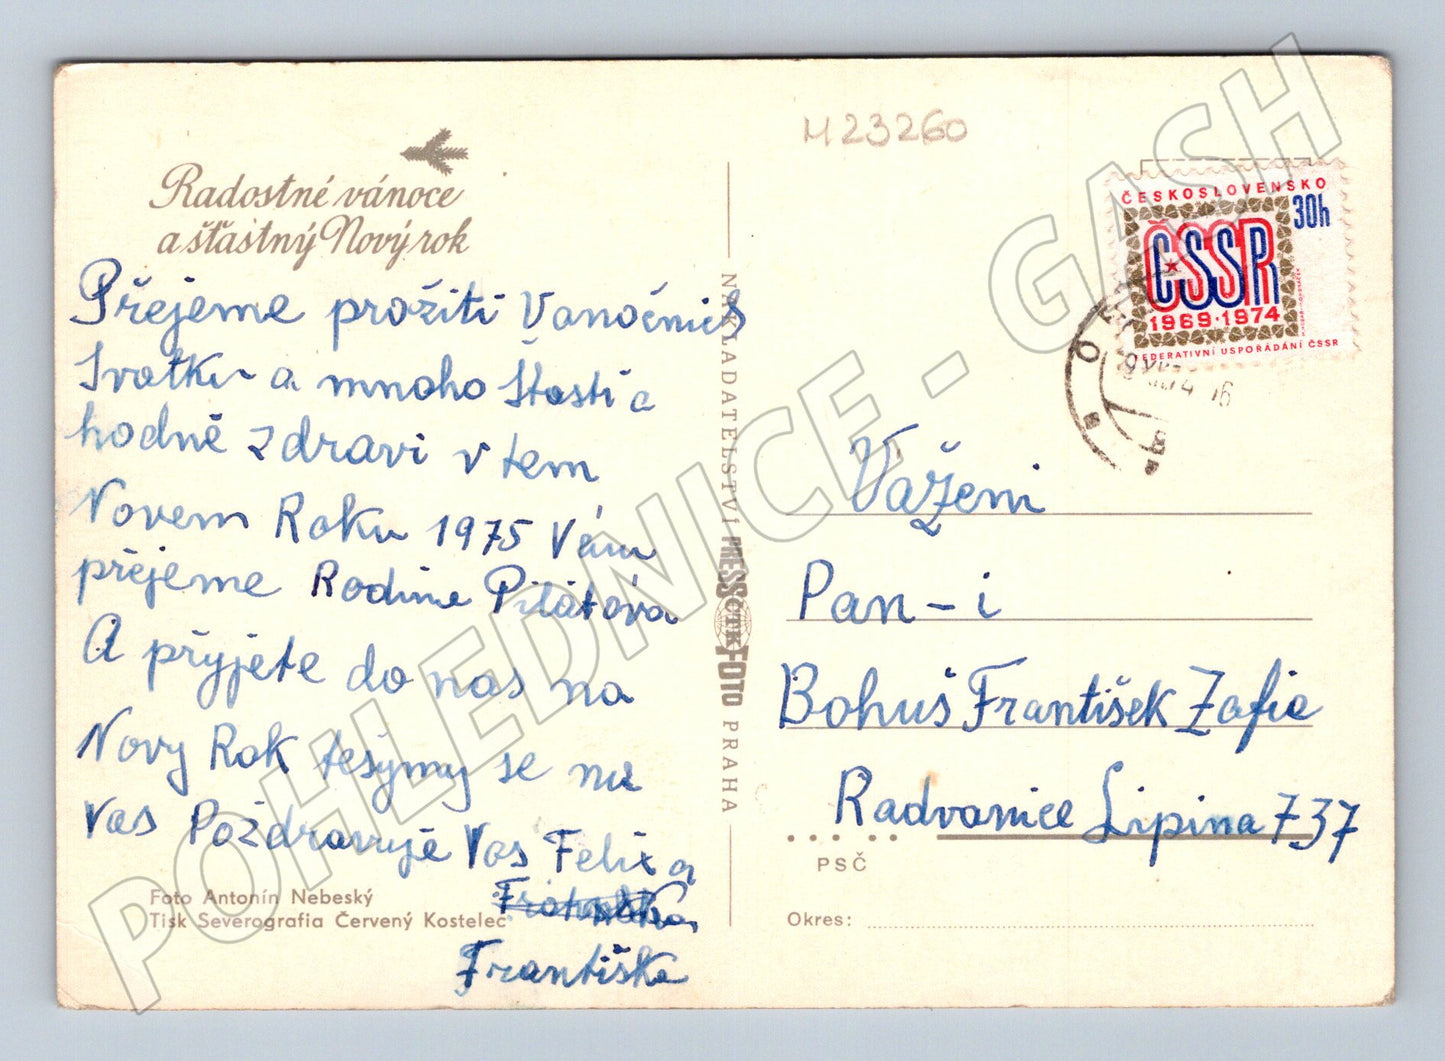 M 23260
Radostné vánoce
a šťastný Nový rok
Přejeme prožiti Vanočnich
Svatku a mnoho Štasti a
hodně zdravi v tem
Novem Roku 1975 Vám
přejeme Rodine Pitátova
A přyjete do nas na
Novy Rok tešymy se na
Vas Pozdravuje Vas Felix a
Františka
Foto Antonín Nebeský
Tisk Severografia Červený Kostelec
NAKLADATELSTVÍ PRESSFOTO ČTK PRAHA
ČESKOSLOVENSKO
30h
ČSSR
1969·1974
FEDERATIVNÍ USPOŘÁDÁNÍ ČSSR
Važeni
Pan-i
Bohuš František Zofie
Radvanice Lipina 737
PSČ
Okres:
POHLEDNICE - GASH